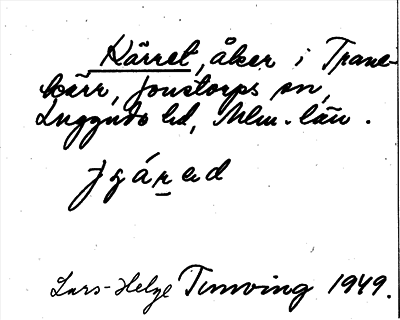 Kärret, åker i Trane-
kärr, Jonstorps sn,
Luggude hd, Mlm. län.
Lars-Helge Tunving 1949.